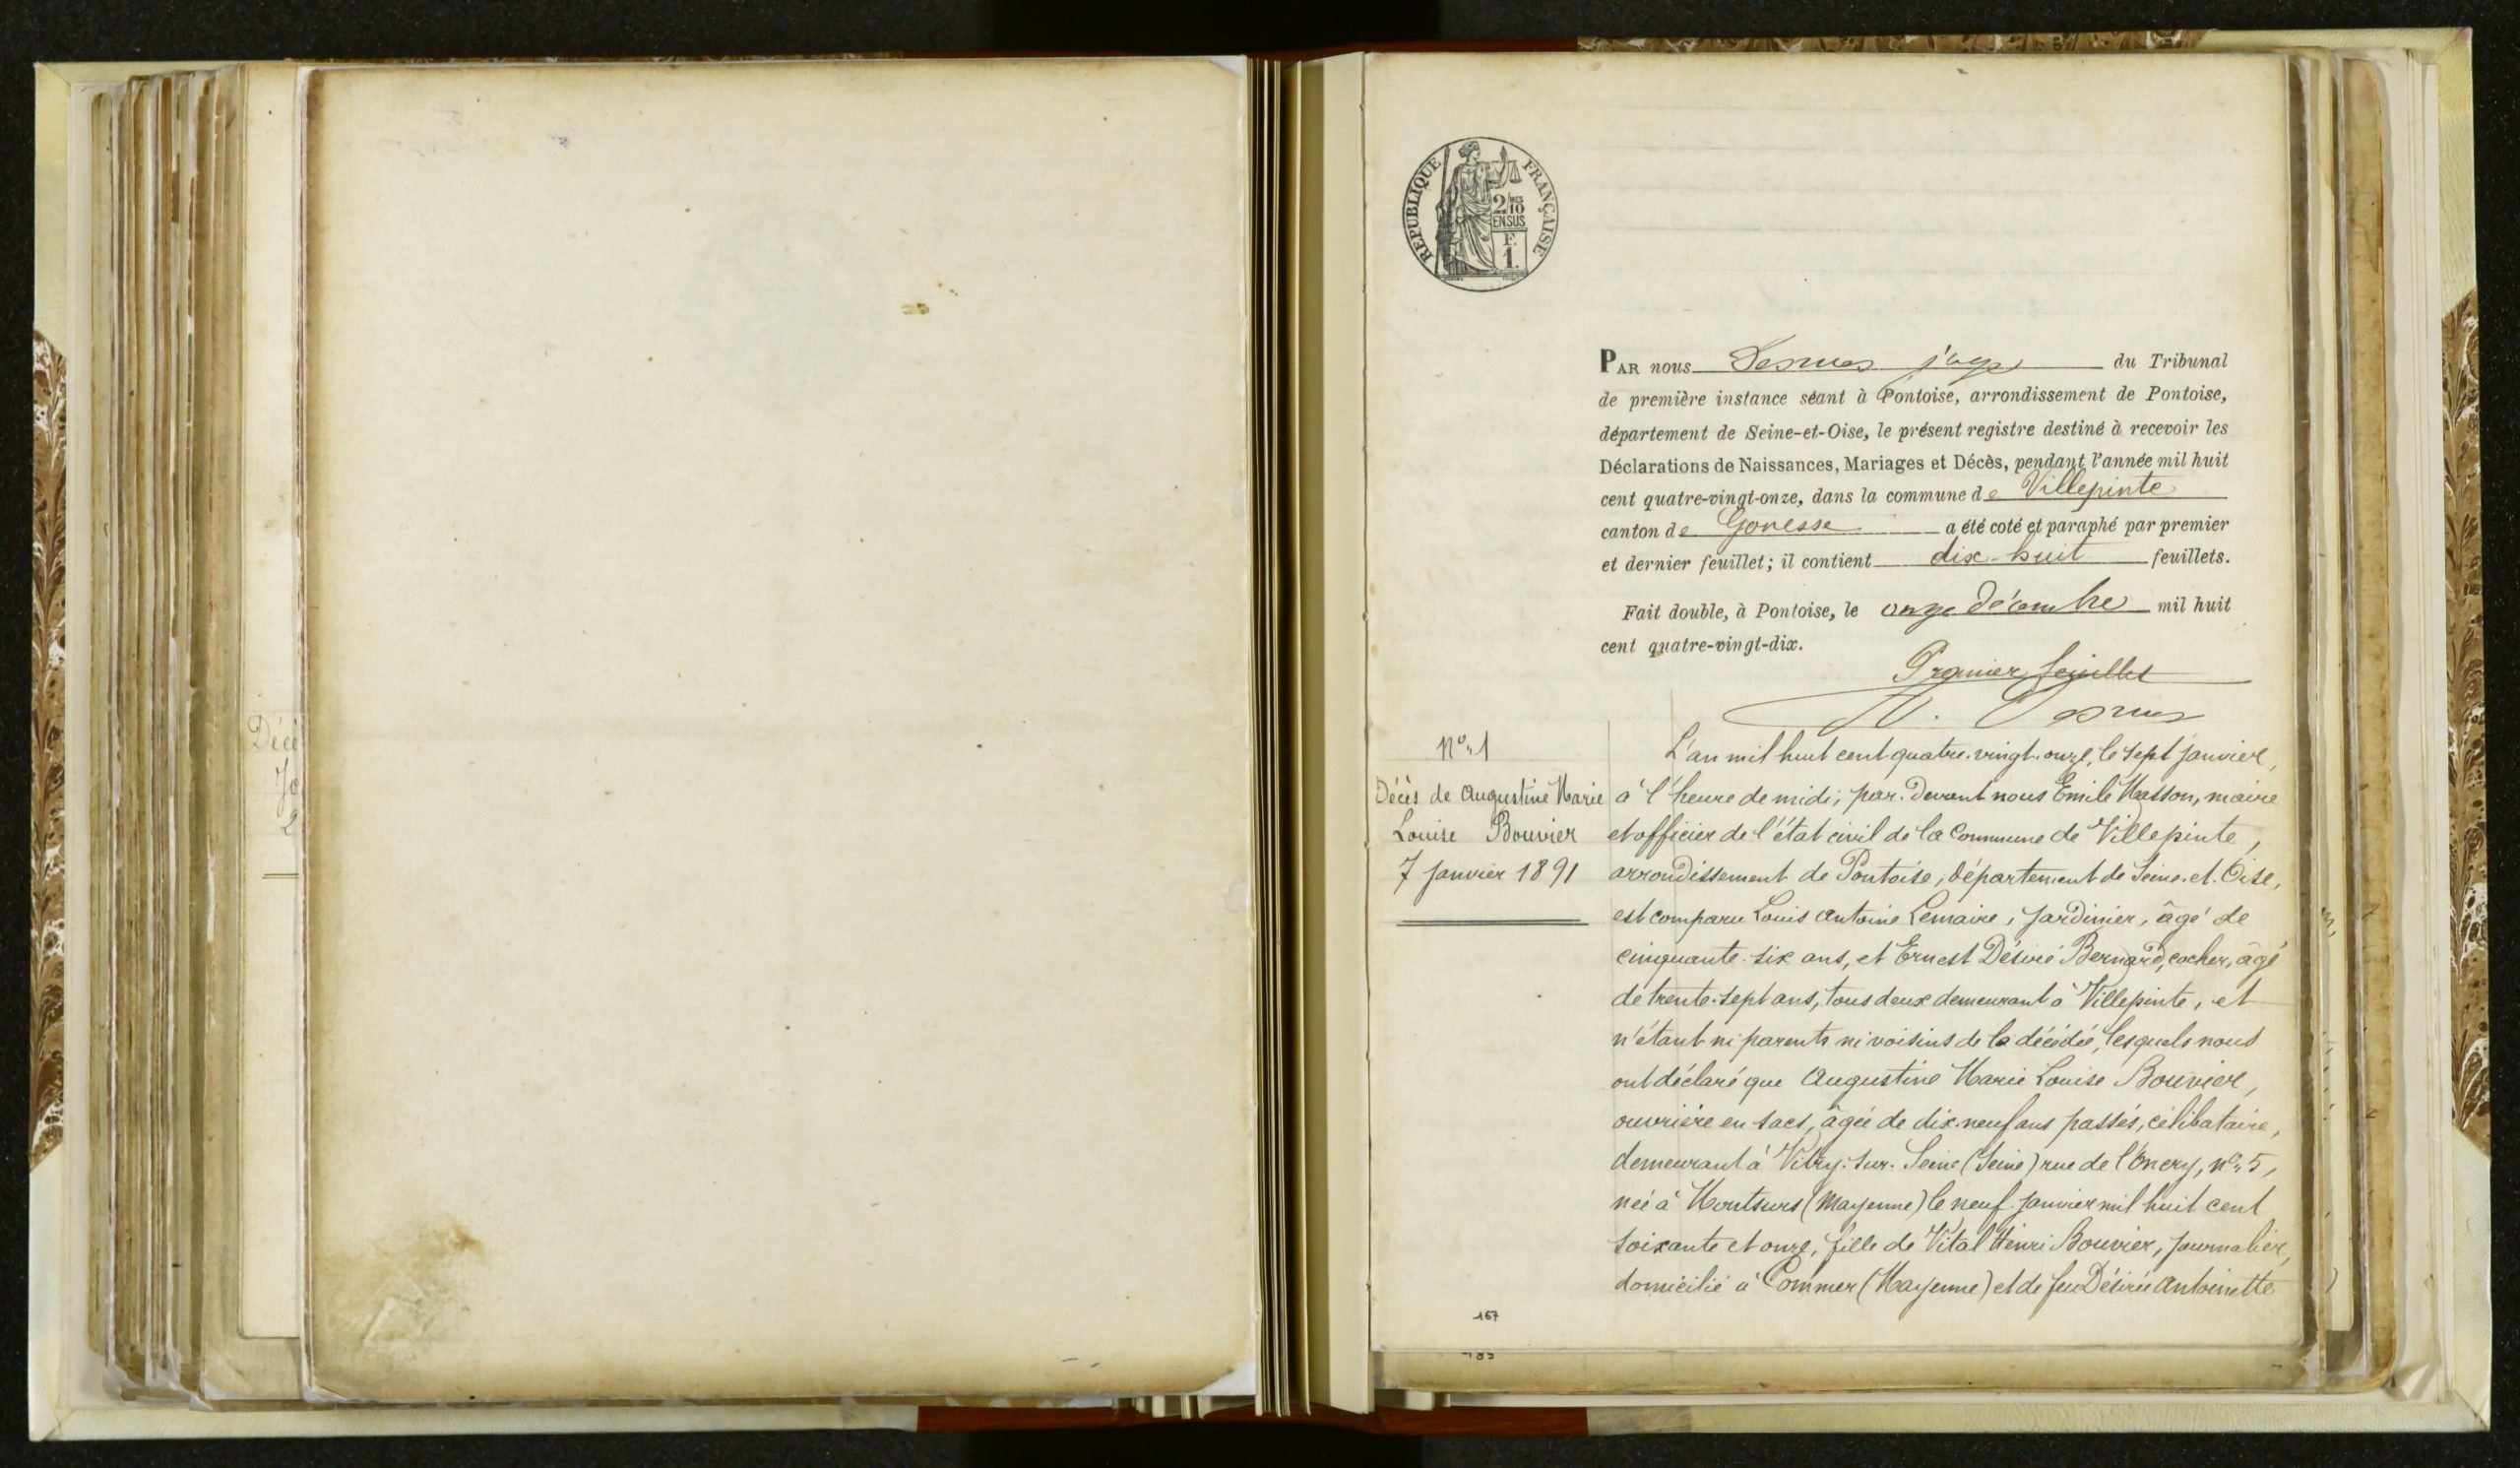 Décè
Jo
2
RÉPUBLIQUE FRANÇAISE
2/10 MES
EN SUS
F.
1.
PAR nous juge du Tribunal
de première instance séant à Pontoise, arrondissement de Pontoise,
département de Seine-et-Oise, le présent registre destiné à recevoir les
Déclarations de Naissances, Mariages et Décès, pendant l'année mil huit
cent quatre-vingt-onze, dans la commune de Villepinte
canton de Gonesse a été coté et paraphé par premier
et dernier feuillet; il contient dix-huit feuillets.
Fait double, à Pontoise, le onze décembre mil huit
cent quatre-vingt-dix.
Premier feuillet
N° 1
Décès de Augustine Marie
Louise Bouvier
7 Janvier 1891
L'an mil huit cent quatre-vingt-onze, le sept Janvier,
à l'heure de midi; par-devant nous Emile Masson, maire
et officier de l'état civil de la Commune de Villepinte,
arrondissement de Pontoise, département de Seine-et-Oise,
est comparu Louis Antoine Lemaire, Jardinier, âgé de
cinquante-six ans, et Ernest Désiré Bernard, cocher, âgé
de trente-sept ans, tous deux demeurant à Villepinte, et
n'étant ni parents ni voisins de la décédée, lesquels nous
ont déclaré que Augustine Marie Louise Bouvier,
ouvrière en sacs, âgée de dix-neuf ans passés, célibataire,
demeurant à Vitry-sur-Seine (Seine) rue de n° 5,
née à Montsurs (Mayenne) le neuf Janvier mil huit cent
soixante et onze, fille de Vital Henri Bouvier, Journalier,
domicilié à Commer (Mayenne) et de feu Désirée Antoinette
167
185